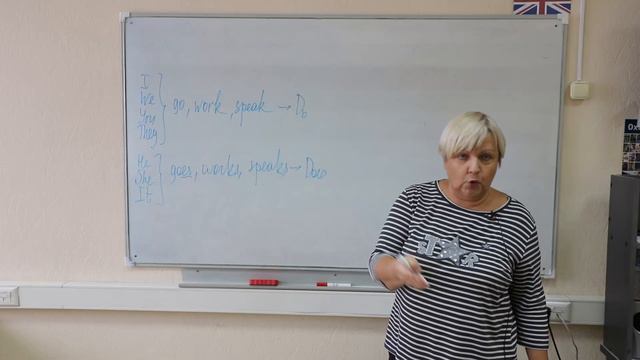 I
We
You
They
go, work, speak → Do
He
She
It
goes, works, speaks → Does
STAR